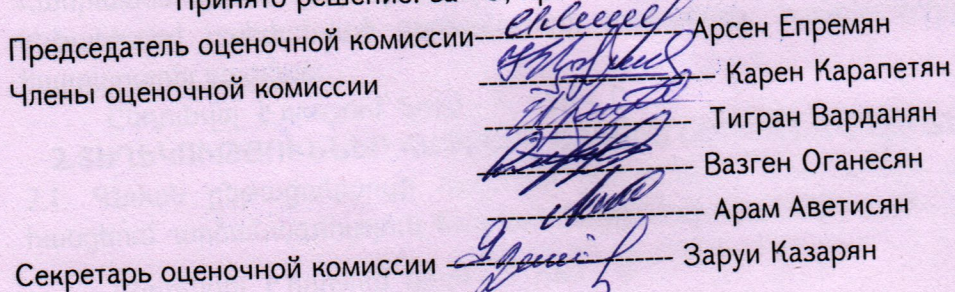 Принято решение: за
Председатель оценочной комиссии--------------------Арсен Епремян
Члены оценочной комиссии ----------------------- Карен Карапетян
---------------------- Тигран Варданян
-------------------- Вазген Оганесян
--------------------- Арам Аветисян
Секретарь оценочной комиссии --------------------- Заруи Казарян